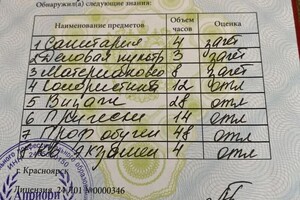 Обнаружил(а) следующие знания:
Наименование предметов Объем часов Оценка
1 Санитария 4 зачёт
2 Деловая культ 3 зачёт
3 Материаловед 8 зачёт
4 Колористика 12 отл
5 Визаж 28 отл
6 Прически 14 отл
7 Проф обучен 48 отл
8 Кв экзамен 4 отл
г. Красноярск
Лицензия 24 Л01 №0000346